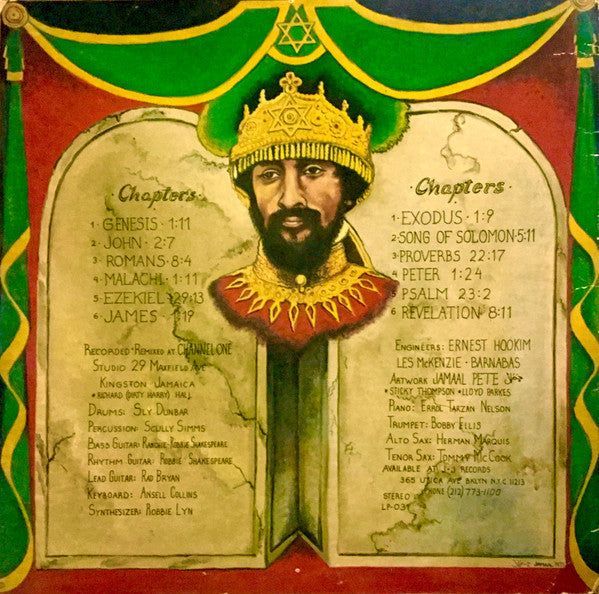 Chapters
1· GENESIS · 1:11
2· JOHN · 2:7
3· ROMANS · 8:4
4· MALACHI · 1:11
5· EZEKIEL 29:13
6· JAMES · 1:19
RECORDED · REMIXED AT CHANNEL ONE
STUDIO 29 MAXFIELD AVE
KINGSTON JAMAICA
• RICHARD (DIRTY HARRY) HALL
DRUMS: SLY DUNBAR
PERCUSSION: SCULLY SIMMS
BASS GUITAR: RANCHIE · ROBBIE SHAKESPEARE
RHYTHM GUITAR: ROBBIE · SHAKESPEARE
LEAD GUITAR: RAD BRYAN
KEYBOARD: ANSELL COLLINS
SYNTHESIZER: ROBBIE LYN
Chapters
1· EXODUS · 1:9
2· SONG OF SOLOMON · 5:11
3· PROVERBS 22:17
4· PETER 1:24
5· PSALM 23:2
6 REVELATION 8:11
ENGINEERS: ERNEST HOOKIM
LES MCKENZIE · BARNABAS
ARTWORK JAMAAL PETE
• STICKY THOMPSON • LLOYD PARKES
PIANO: ERROL TARZAN NELSON
TRUMPET: BOBBY ELLIS
ALTO SAX: HERMAN MARQUIS
TENOR SAX: TOMMY MCCOOK
AVAILABLE AT J·J RECORDS
365 UTICA AVE BKLYN N.Y.C 11213
STEREO PHONE (212) 773-1100
LP-03